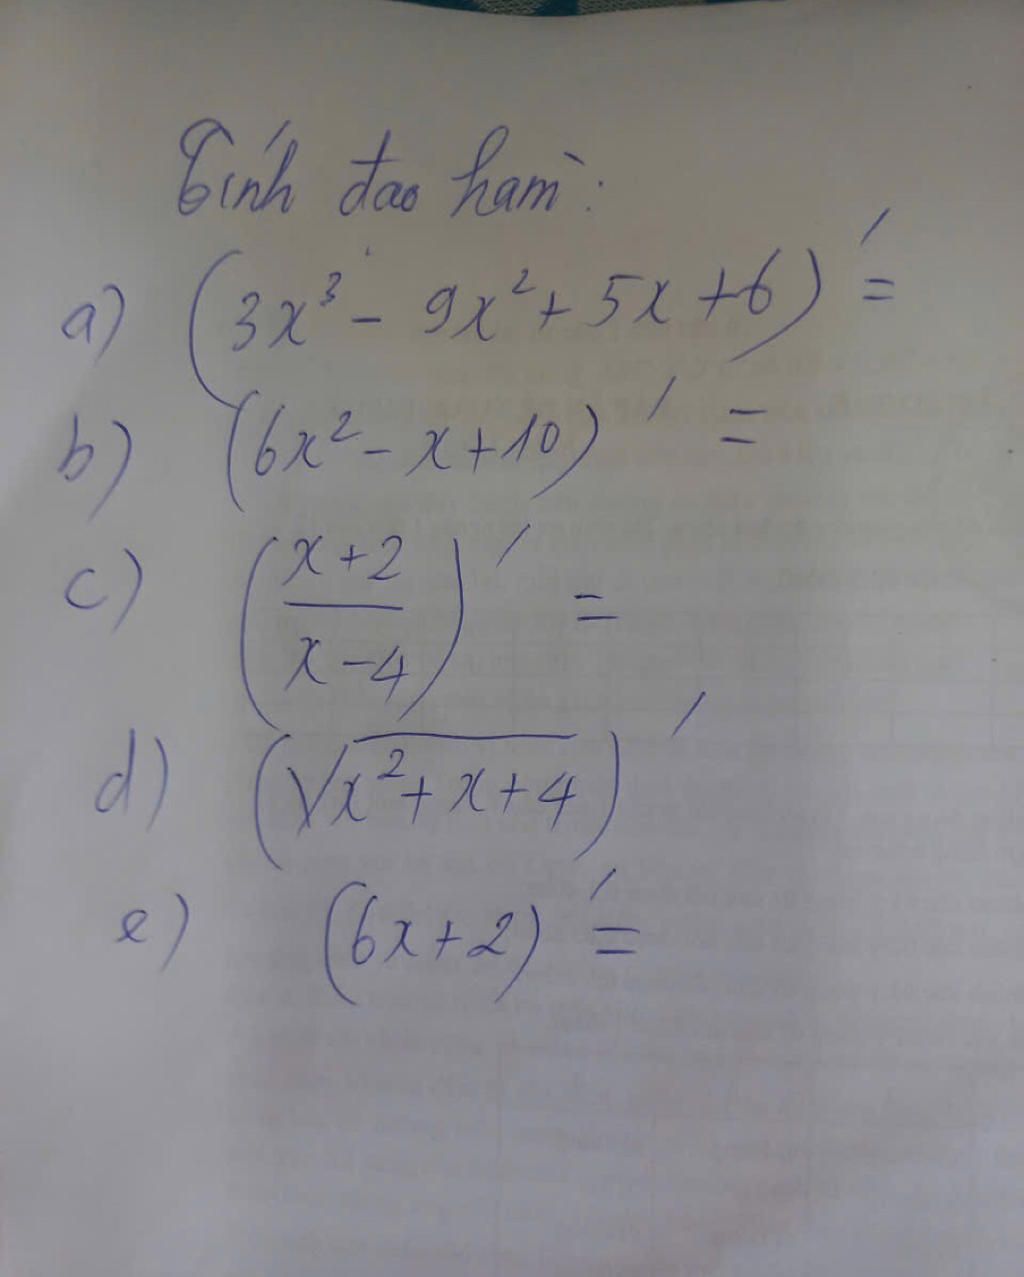 Tính đạo hàm:
a) (3x³ - 9x² + 5x + 6)' =
b) (6x² - x + 10)' =
c) ((x+2)/(x-4))' =
d) (√(x² + x + 4))'
e) (6x + 2)' =